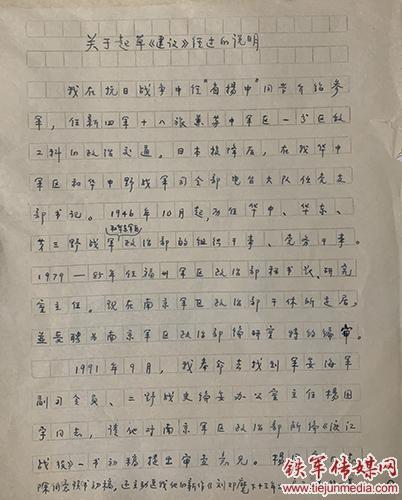 关于起草《建议》经过的说明
我在抗日战争中经"省扬中"同学介绍参
军，任新四军十八旅兼苏中军区一分区敌
工科的政治交通。日本投降后，在我华中
军区和华中野战军司令部电台大队任党支
部书记。1946年10月起，历任华中、华东、
第三野战军政治部的组织干事、党务干事。
1979—85年任福州军区政治部秘书长、研究
室主任。现在南京军区政治部干休所走居，
并受聘为南京军区政治部编研室特约编审。
1991年9月，我奉命去找到军委海军
副司令员、二野战史编委办公室主任杨国
宇同志，请他对南京军区政治部所编《渡江
战役》一书初稿提出审查意见。杨
除同意该书初稿，还主动送我他的新作《刘邓麾下十三年》
铁军传媒网
www.tiejunmedia.com